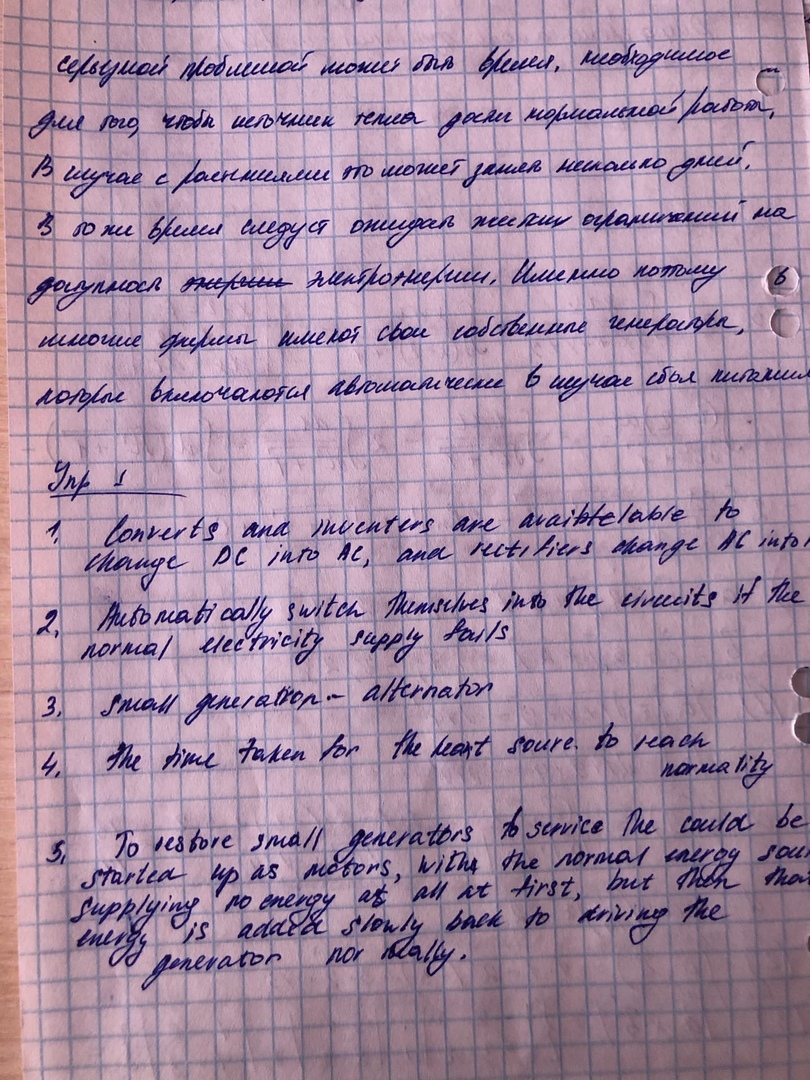 серьезной проблемой может быть время, необходимое
для того, чтобы источник тепла достиг нормальной работы.
В случае с это может занять несколько дней.
В то же время следует ожидать жестких ограничений на
доступность энергии электроэнергии. Именно потому
многие фирмы имеют свои собственные генераторы,
которые включаются автоматически в случае сбоя питания
Упр 1
1. Converts and inventers are available to
change DC into AC, and rectifiers change AC into
2. Automatically switch themselves into the circuits if the
normal electricity supply fails
3. small generation - alternator
4. The time taken for the heat source to reach
normality
5. To restore small generators to service the could be
started up as motors, with the normal energy sou
supplying no energy at all at first, but then that
energy is added slowly back to driving the
generator nor mally.
6